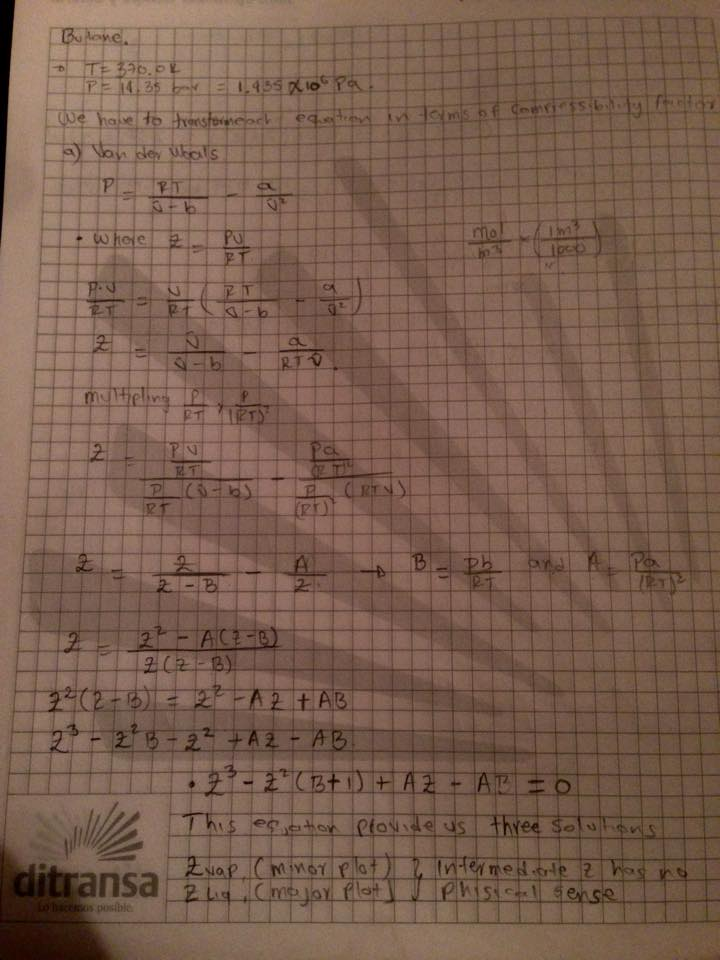 Butane.
→ T = 370.0 K
P = 14.35 bar = 1.435 x10⁶ Pa.
We have to transform each equation in terms of compressibility factor
a) Van der Waals
P = RT/(v̄-b) - a/v̄²
• Where Z = PV/RT
mol/m³ × (1m³/1000)
P·V/RT = V/RT (RT/(v̄-b) - a/v̄²)
Z = v̄/(v̄-b) - a/(RTv̄).
multipling P/RT, P/(RT)²
Z = (PV/RT)/(P/RT (v̄-b)) - (Pa/(RT)²)/(P/(RT)² (RTV))
Z = Z/(Z-B) - A/Z → B = Pb/RT and A = Pa/(RT)²
Z = (Z² - A(Z-B))/(Z(Z-B))
Z²(Z-B) = Z² - AZ + AB
Z³ - Z²B - Z² + AZ - AB.
• Z³ - Z²(B+1) + AZ - AB = 0
This equation provide us three solutions
Z vap, (minor plot) } Intermediate Z has no
Z Liq, (major plot) } Phisical sense
ditransa
Lo hacemos posible.